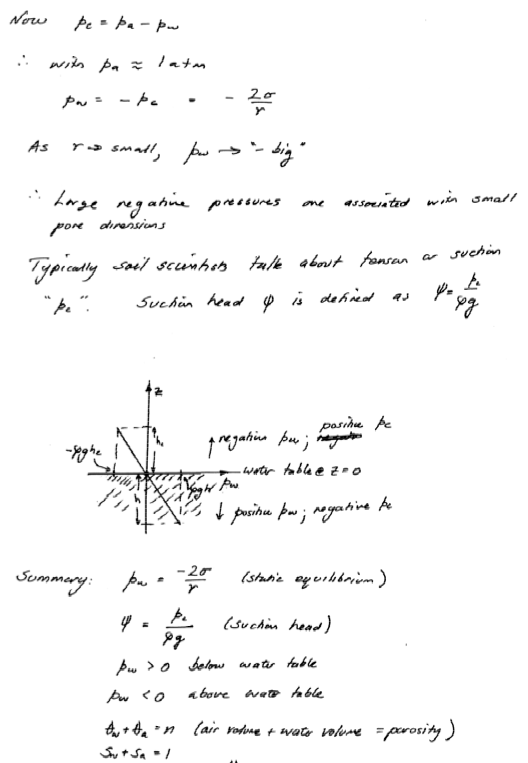 Now p_c = p_a - p_w
∴ with p_a ≈ 1 atm
p_w = - p_c = - 2σ/r
As r → small, p_w → "- big"
∴ Large negative pressures are associated with small
pore dimensions
Typically soil scientists talk about tension or suction
"p_c". Suction head ψ is defined as ψ = p_c/ρg
z
h_c
↑ negative p_w; positive p_c
-ρgh_c
water table @ z=0
p_w
h
ρgh
↓ positive p_w; negative p_c
Summary: p_w = -2σ/r (static equilibrium)
ψ = p_c/ρg (suction head)
p_w > 0 below water table
p_w < 0 above water table
θ_w + θ_a = n (air volume + water volume = porosity)
S_w + S_a = 1